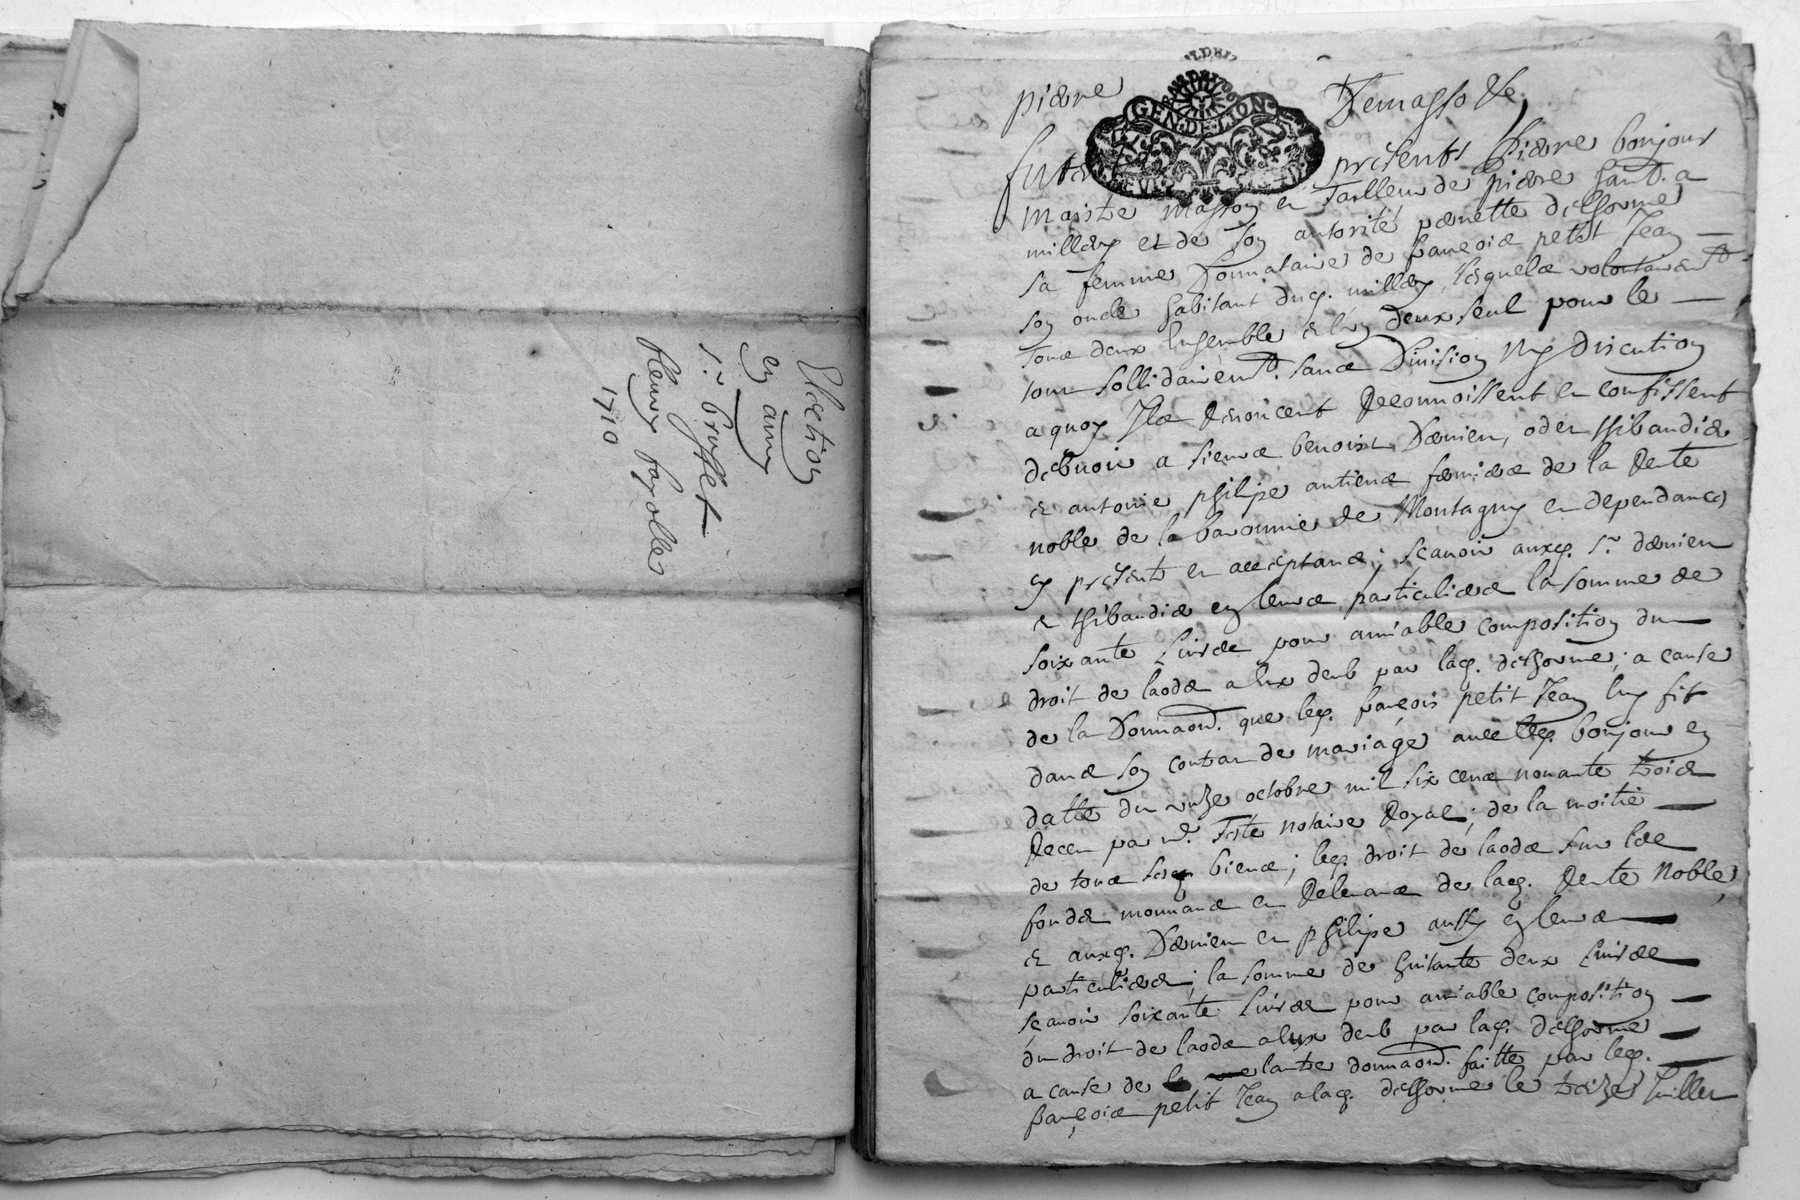 Election
en amy
sr. bruyset
fleury fayolle
1710
GEN·DE·LION
pierre
futur presents Pierre bonjour
maistre masson et Tailleur de pierre habt. a
millery et de son autorité pernette delhorme
sa femme donnataire de francois petit Jean
son oncle habitant dud. millery, lesquels volontairemt.
tous deux ensemble et lun deux seul pour le
tout sollidairemt. sans Division ny discution
a quoy Ils Renoncent Reconnoissent et confissent
debvoir a sieurs benoist Dervieu, oder thibaudier
et antoine philipe antiens fermiers de la Rente
noble de la baronnie de Montagny et dependances
cy presents et acceptans; scavoir auxd. sr. dervieu
et thibaudier en leurs particuliers la somme de
soixante Livres pour amiable composition du
droit de laods a eux deub par lad. delhorme; a cause
de la Donnaon. que led. francois petit Jean luy fit
dans son contrat de mariage avec led. bonjour en
datte du unze octobre mil six cens nonante trois
Receu par me. Teste notaire Royal; de la moitié
de tous ses biens; led. droit de laods sur les
fonds mouvans et Relevans de lad. Rente Noble,
et auxd. Dervieu et philipe aussy en leurs
particuliers; la somme de huitante deux Livres
scavoir soixante Livres pour amiable composition
du droit de laods a eux deub par lad. delhorme
a cause de lautre donnaon. faitte par led.
francois petit Jean a lad. delhorme le treize Juillet